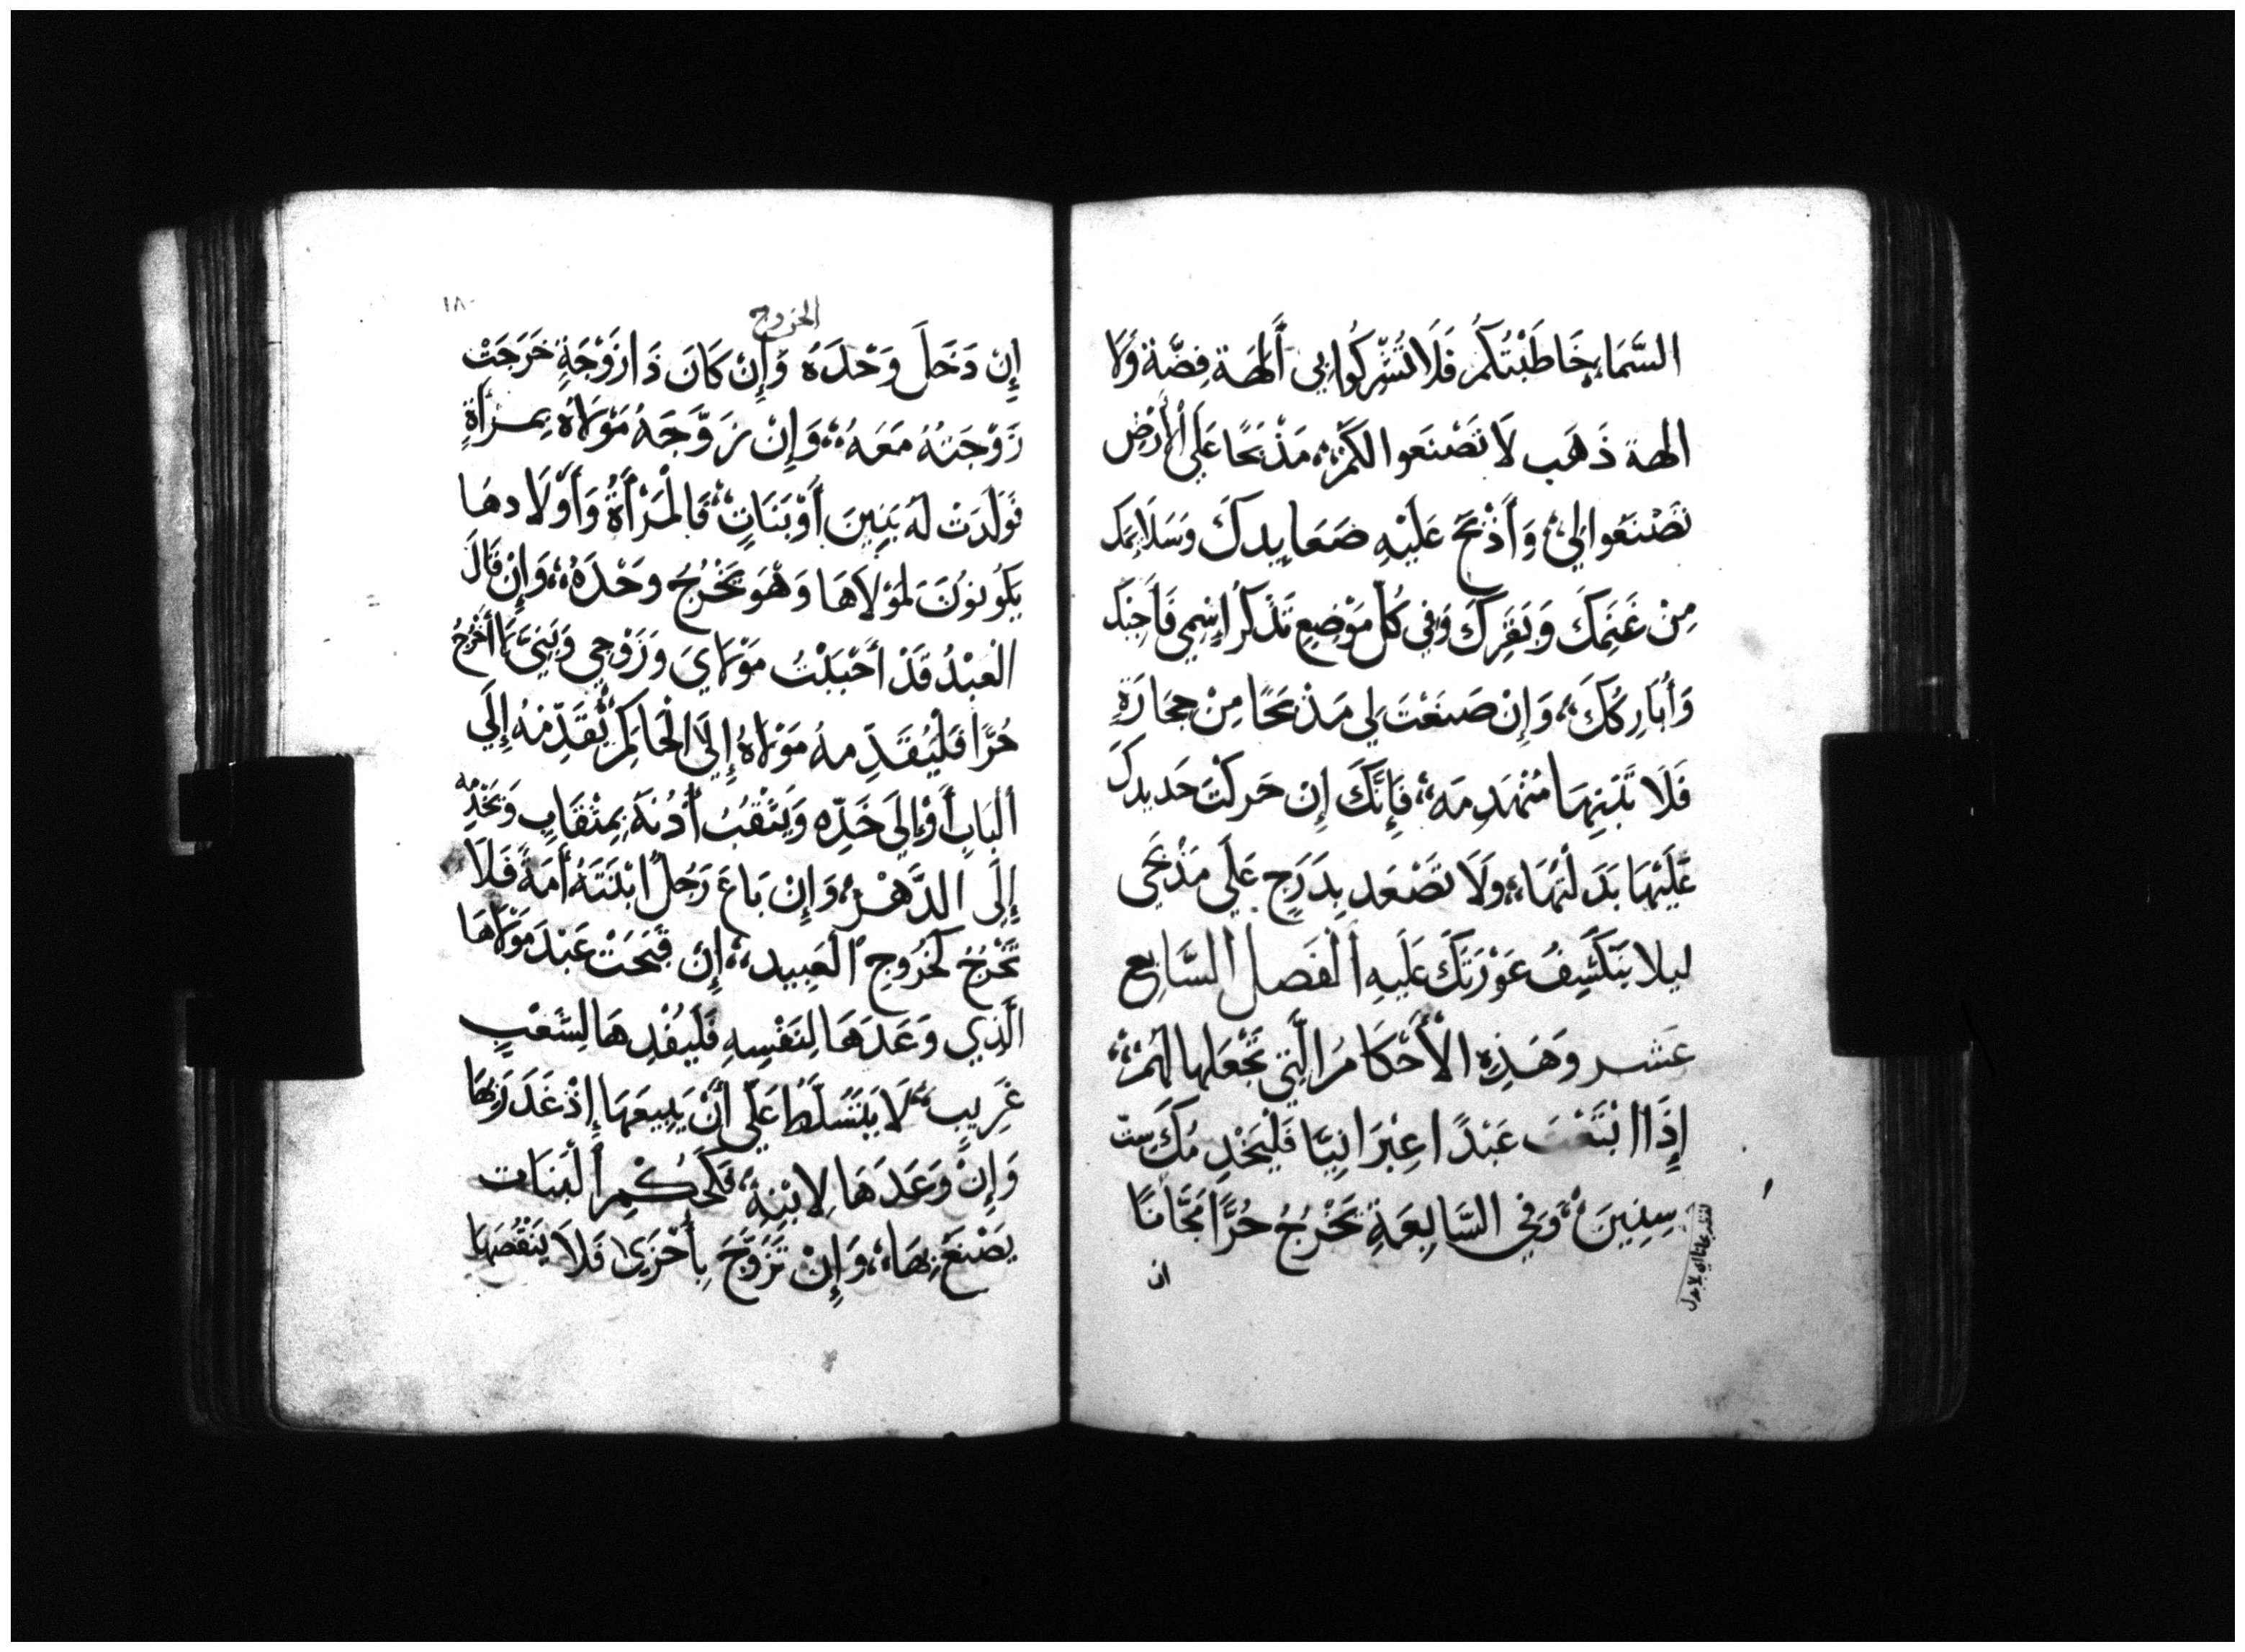 السَّمَاءِ خَاطَبْتُكُمْ فَلَا تُشْرِكُوا بِي أَلهَة فِضَّة وَلَا
الهة ذَهَب لَا تَصْنَعوا لكُمْ، مَذْبَحًا عَلَى الْأَرْضِ
تَصْنَعُوا لِي، وَأَذْبَحْ عَلَيْهِ صَعَايِدكَ وَسَلَايِمَك
مِنْ غَنَمِكَ وَبَقَرِكَ وَفِي كُلّ مَوْضِع تَذْكر اسْمِي فَأَجِيْك
وَأُبَارِكُكَ، وَإِنْ صَنَعْتَ لِي مَذْبَحًا مِنْ حِجَارَةٍ
فَلَا تَبْنِهَا مُنْهَدِمَه، فَإِنَّكَ إِنْ حَركْتَ حَديدكَ
عَلَيْهَا بَدَلْتَهَا، وَلَا تَصْعَد بِدَرَجٍ عَلَى مَذْبَحِي
ليلا يَنْكَشِفُ عَوْرَتكَ عَلَيهِ الْفَصل السَّابِع
عَشر وَهَذِهِ الْأَحْكَامُ الَّتِي تَجْعَلها لَهُمْ
إِذَا ابْتَعْتَ عَبْدًا عِبْرَانِيًّا فَلْيَخْدِمُكَ ست
سِنِينَ، وَفِي السَّابِعَةِ يَخْرُجُ حُرًّا مَجَّانًا
ان
الخروج
١٨٠
إِنْ دَخَلَ وَحْدَهُ وَإِنْ كَانَ ذَا زَوْجَةٍ خَرَجَتْ
زَوْجَتهُ مَعَهُ، وَإِنْ زَوَّجَهُ مَوْلَاهُ بِمرْأةٍ
فَوَلَدَتْ لَهُ بَنِينَ أَوْ بَنَاتٍ، فَالْمَرْأَةُ وَأَوْلَادهَا
يَكُونُونَ لمَوْلَاهَا وَهُوَ يَخْرُجُ وحْدَهُ، وَإِنْ قَالَ
الْعبْدُ قَدْ أَحْبَبْتُ مَوْلَايَ وَزَوْجِي وَبَنِيَّ مَا أَخْرُجُ
حُرًّا فَلْيُقَدِّمهُ مَوْلَاهُ إِلَى الْحَاكِمِ يُقَدِّمهُ إِلَى
الْبَاب أَوْ إِلَى خَدِّه وَيَثْقبُ أُدُنَهُ بِمِثْقَابٍ وَيَخْدِمْه
إِلَى الدَّهْرِ، وَإِنْ بَاعَ رَجُلٌ ابْنَتَهُ أَمَةً فَلَا
تَخْرُجُ كَخُرُوجِ الْعَبِيد، إِنْ قَبحَتْ عَبْدَ مَوْلَاهَا
الَّذِي وَعَدَهَا لِنَفْسِهِ فَلْيُفْدِهَا لِشَعْبٍ
غَرِيبٍ، لَا يَتَسَلَّطُ عَلَى أَنْ يَبِيعَهَا إِذْ غَدَرَ بِهَا
وَإِنْ وَعَدَهَا لِابْنِهِ، فَكَحُكْمِ الْبَنَات
يَصْنَع بِهَا، وَإِنْ تَزَوَّجَ بِأُخْرَى فَلَا يَنْقُصهَا